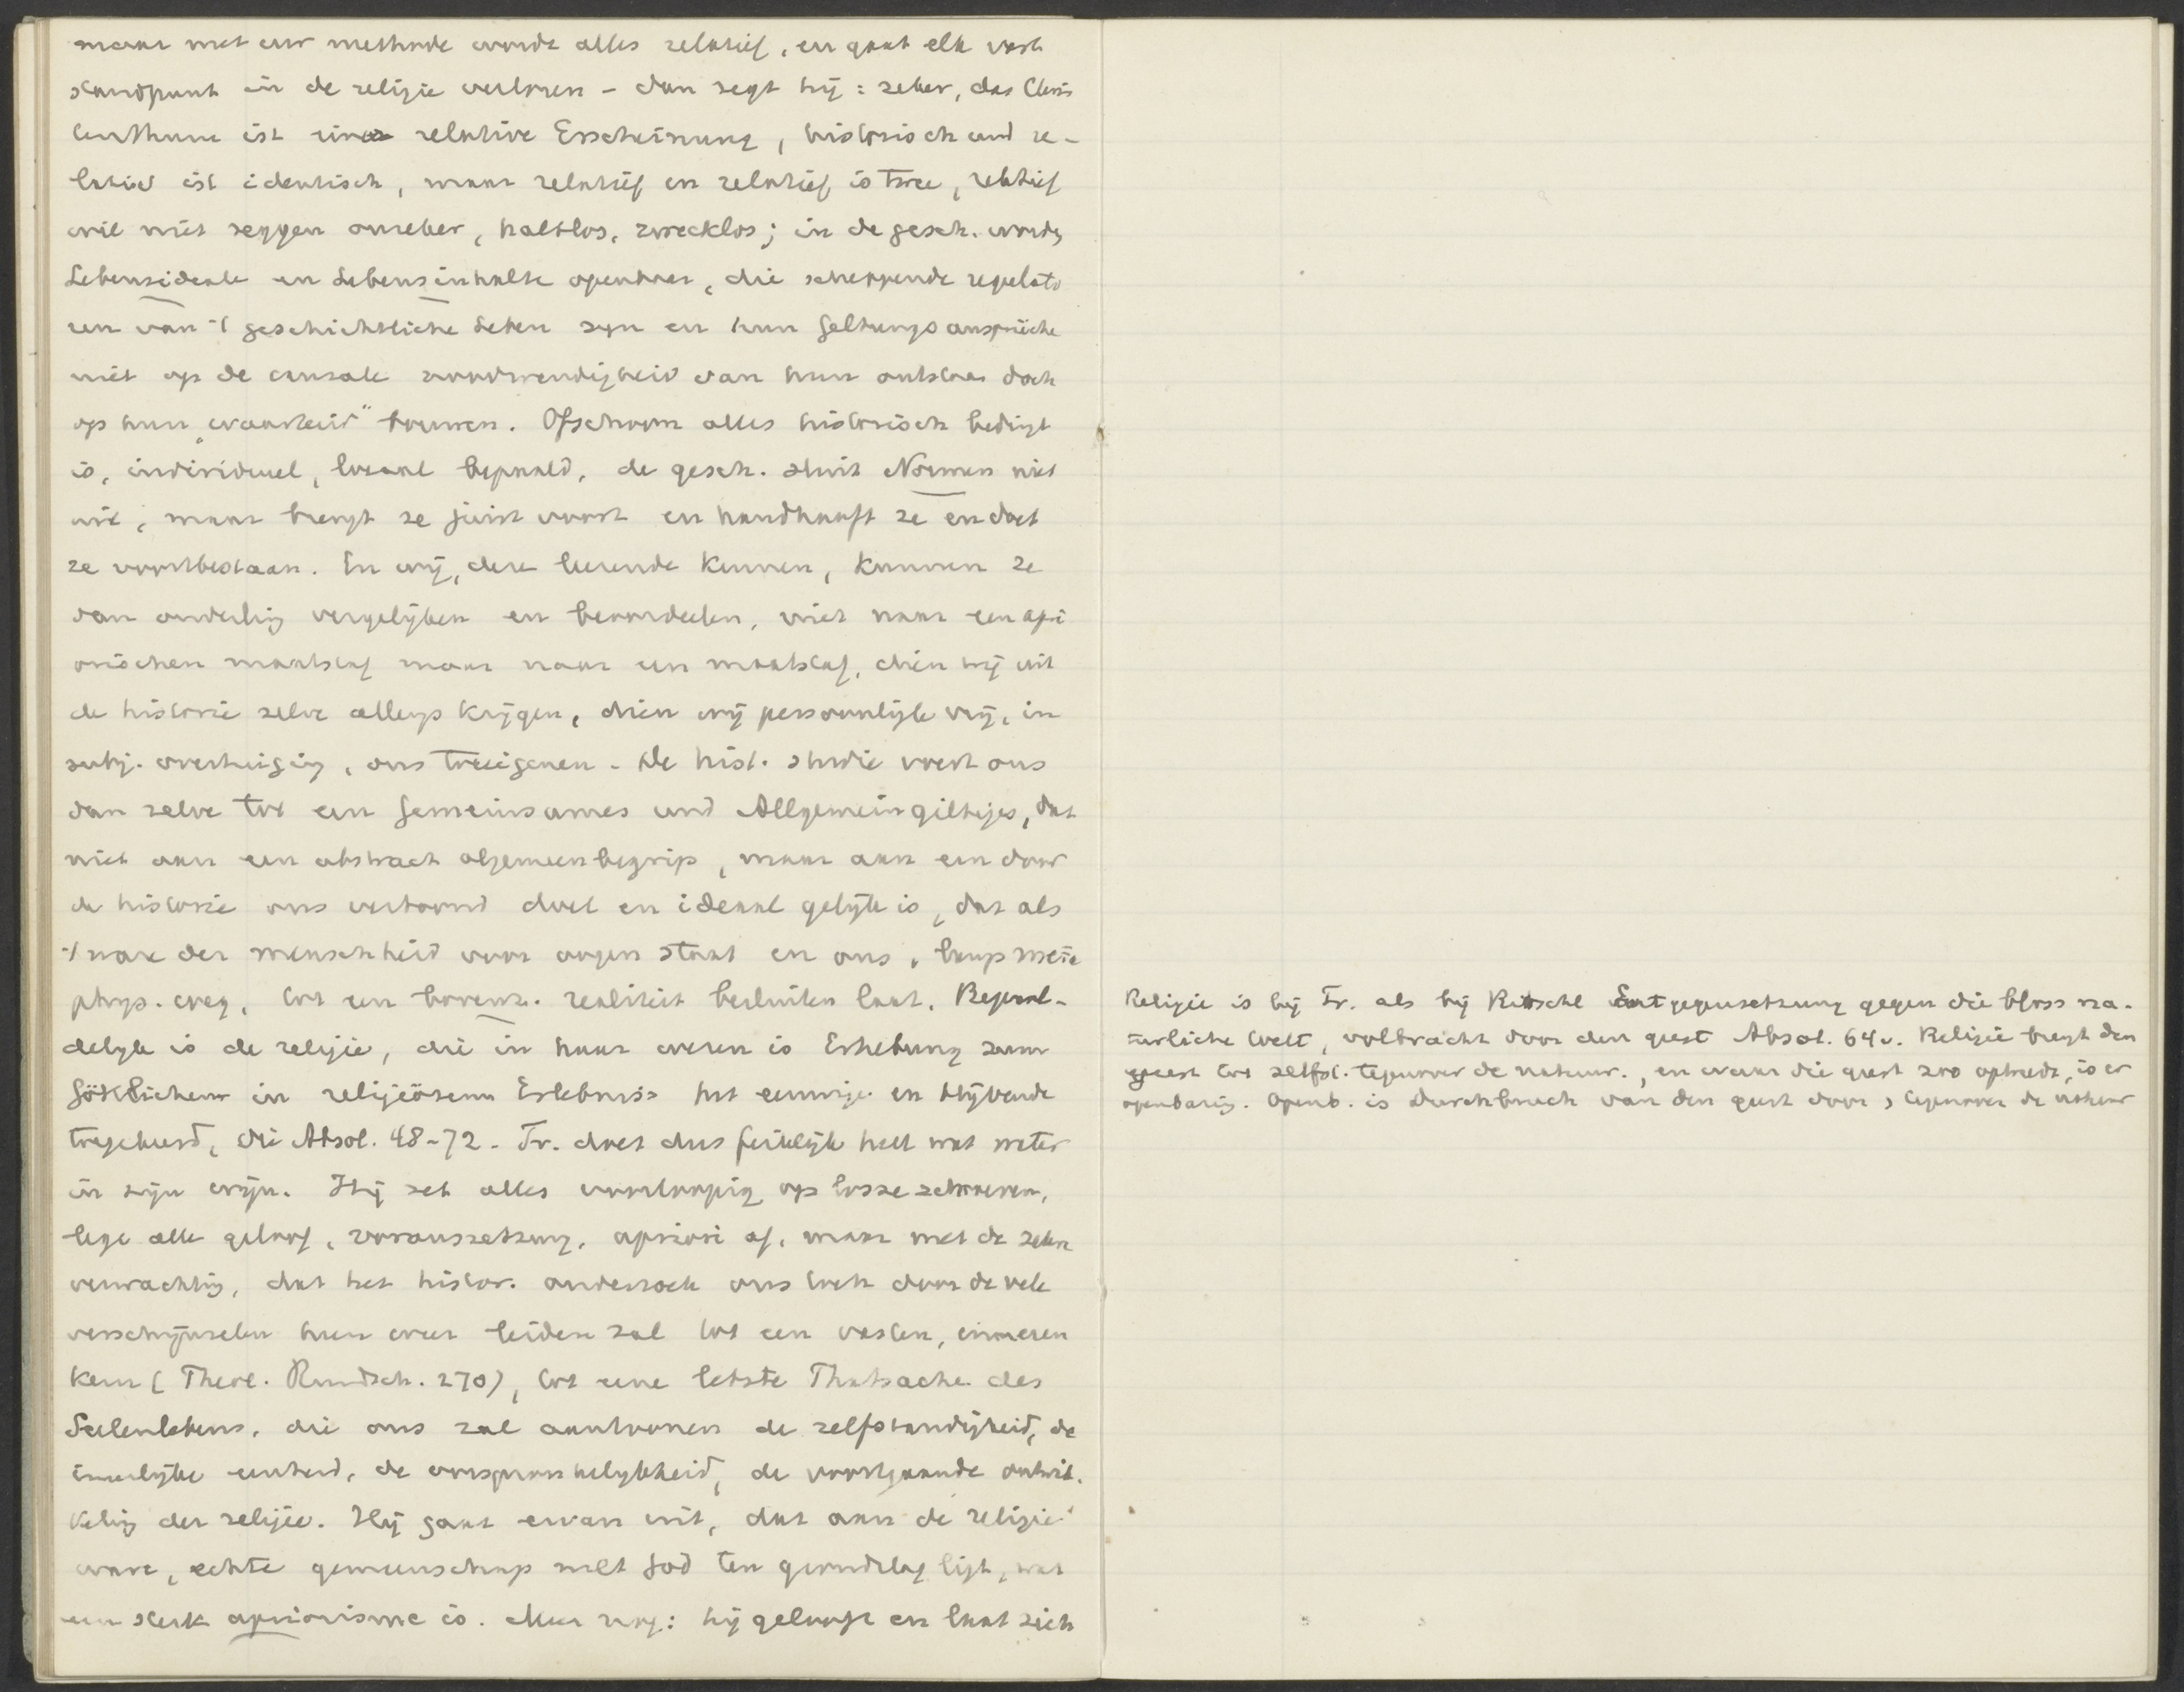 maar met uw methode wordt alles relatief, en gaat elk vast
standpunt in de religie verloren - dan zegt hij: zeker, das Chris
tenthum ist eine relative Erscheinung, historisch und re-
lativ ist identisch, maar relatief en relatief is twee, relatief
wil niet zeggen onzeker, haltlos, zwecklos; in de gesch. worden
Lebensideale en Lebensinhalte openbaar, die scheppende regulato
ren van 't geschichtliche Leben zijn en hun Geltungsansprüche
niet op de causale noodwendigheid van hun ontstaan doch
op hun „waarheid” bouwen. Ofschoon alles historisch bedingt
is, individueel, locaal bepaald, de gesch. sluit Normen niet
uit, maar brengt ze juist voort en handhaaft ze en doet
ze voortbestaan. En wij, deze leerende kennen, kunnen ze
dan onderling vergelijken en beoordeelen, niet naar een apri
orischen maatstaf maar naar een maatstaf, dien wij uit
de historie zelve allengs krijgen, dien wij persoonlijk vrij, in
subj. overtuiging, ons toeeigenen - De hist. studie voert ons
dan zelve tot een Gemeinsames und Allgemeingiltiges, dat
niet aan een abstract algemeenbegrip, maar aan een door
de historie ons vertoond doel en ideaal gelijk is, dat als
't ware der menschheid voor oogen staat en ons, langs meta
phys. weg, tot een bovenz. realiteit besluiten laat.
delijk is de religie, die in haar wezen is Erhebung zum
Göttlichen in religiösem Erlebniss het eeuwige en blijvende
toegekeerd, die Absol. 48-72 - Tr. doet dus feitelijk heel wat water
in zijn wijn. Hij zet alles voorloopig op losse schroeven,
legt alle geloof, voraussetzung, apriori af, maar met de zekere
verwachting, dat het histor. onderzoek ons toch door de vele
verschijnselen heen weer leiden zal tot een vasten, inneren
Kern (Theol. Rundsch. 270), tot eine letste Thatsache des
Seelenlebens, die ons zal aantoonen de zelfstandigheid, de
innerlijke eenheid, de oorspronkelijkheid, de voortgaande ontwik.
keling der religie. Hij gaat ervan uit, dat aan de religie
ware, echte gemeenschap met God ten grondslag ligt, wat
een sterk apriorisme is. Meer nog: hij gelooft en laat zich
Religie is bij Tr. als bij Ritschl Entgegensetzung gegen die bloss na-
türliche Welt, volbracht door den geest Absol. 64v. Religie brengt den
geest tot zelfst. tegenover de natuur., en waar die geest zoo optreedt, is er
openbaring. Openb. is Durchbruch van den geest door, tegenover de natuur